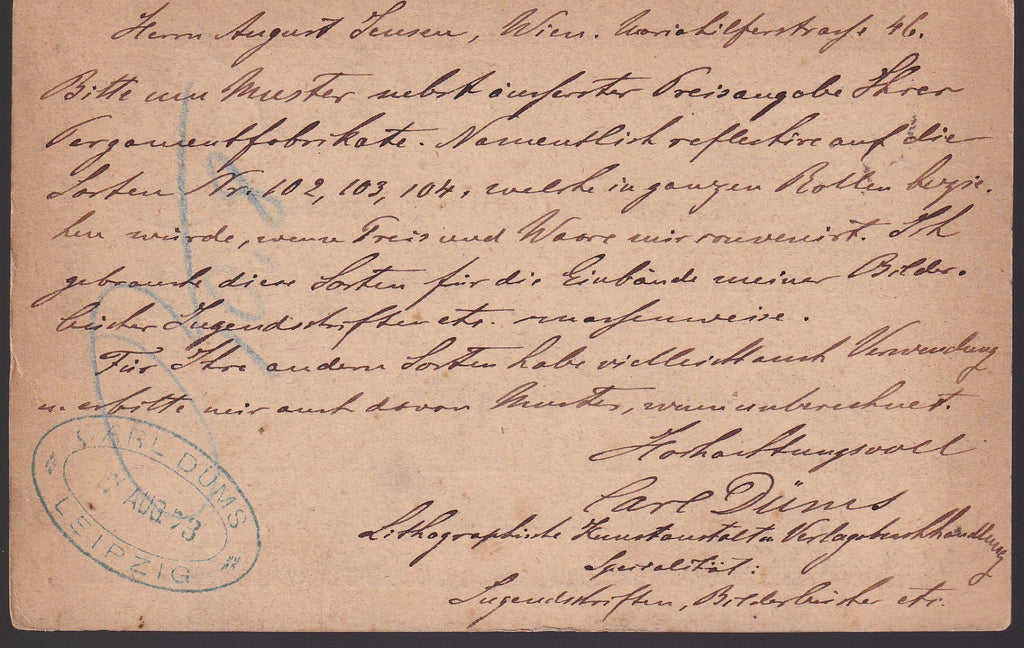 Herrn August Jensen, Wien. Mariahilferstraße 46.
Bitte um Muster nebst äußerster Preisangabe Ihrer
Pergamentfabrikate. Namentlich reflectire auf die
Sorten Nr. 102, 103, 104, welche in ganzen Rollen bezie-
hen würde, wenn Preis und Waare mir convenirt. Ich
gebrauche diese Sorten für die Einbände meiner Bilder-
bücher Jugendschriften etc. massenweise.
Für Ihre andern Sorten habe vielleicht auch Verwendung
u. erbitte mir auch davon Muster, wenn unberechnet.
Hochachtungsvoll
Carl Düms
Lithographische Kunstanstalt u Verlagsbuchhandlung
Spezialität:
Jugendschriften, Bilderbücher etc.
CARL DÜMS
AUG 73
LEIPZIG